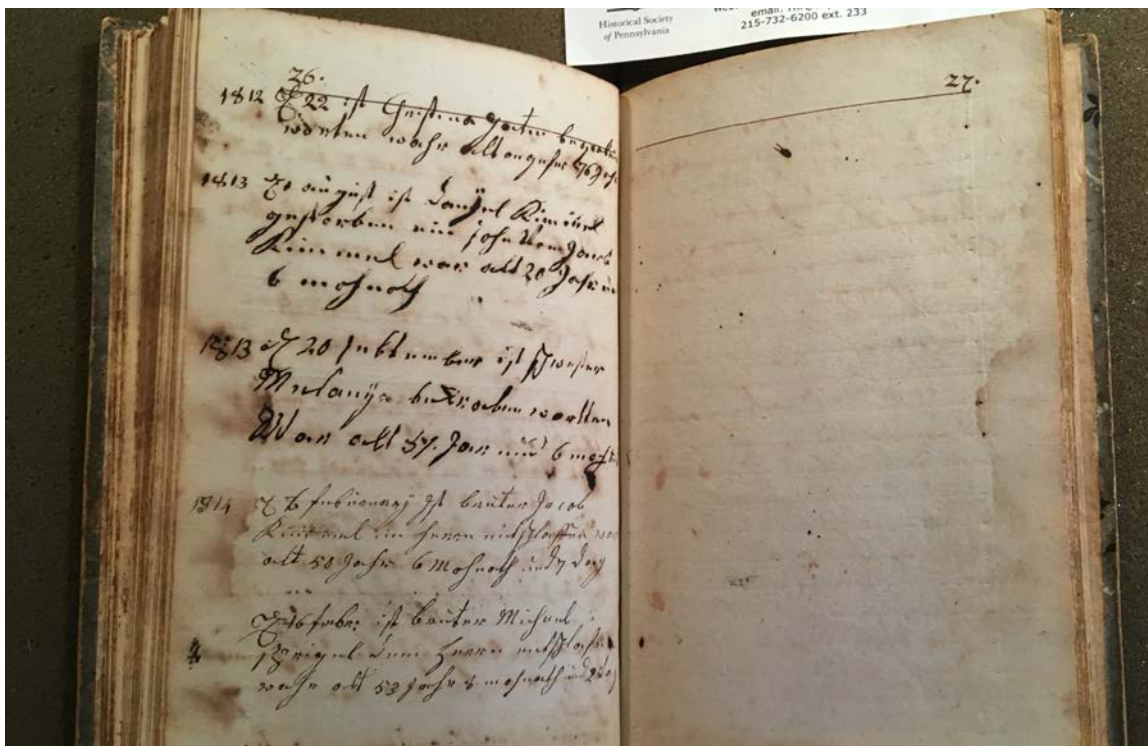 Historical Society
of Pennsylvania
email:
215-732-6200 ext. 233
26.
1812 22 ist Christina
worten wahr alt ungefer 76 Jahr
1813 august ist Daniel Kimmel
gestorben ein sohn vom Jacob
Kimmel war alt 20 Jahr un
6 mohnath
1813 20 sebtember ist schwester
Melanÿa begraben wortten
War alt 57 Jar und 6 moh
1814 6 februarÿ Ist bruter Jacob
Kimmel im Herrn entschlaffen
alt 50 Jahr 6 Mohnath und 7 Dag
16 feber ist bruter Michael
dem Herrn entschlaf
wahr alt 53 Jahr 8 mohnath und
27.